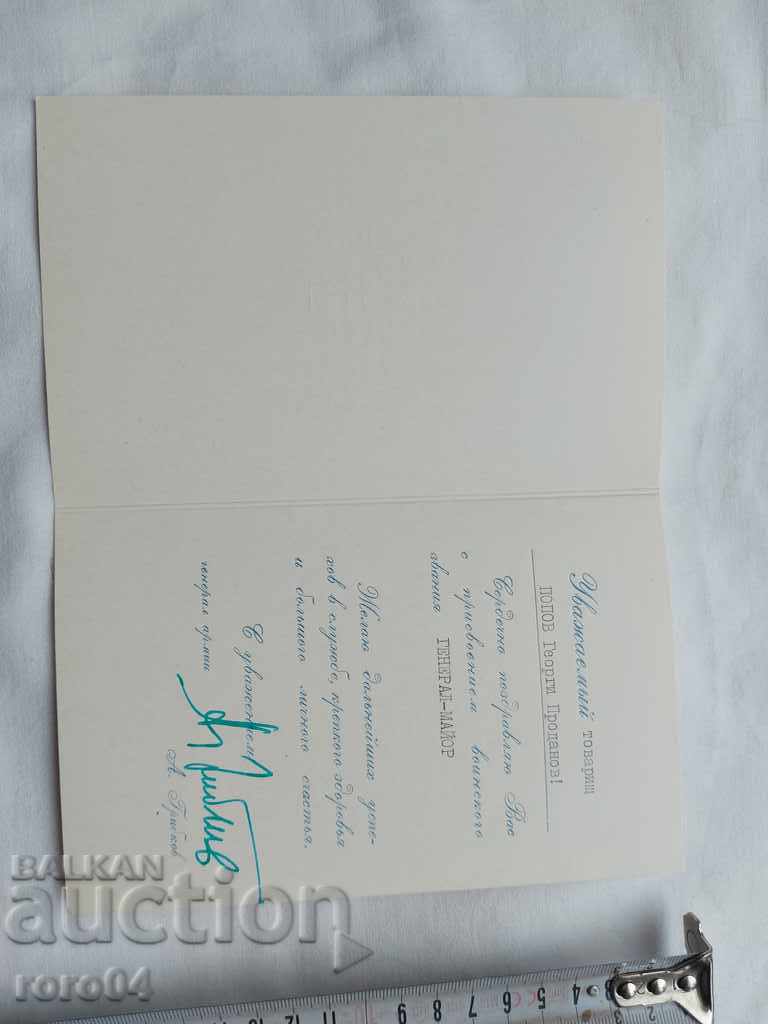 Уважаемый товарищ
ПОПОВ Георги Проданов!
Сердечно поздравляю Вас
с присвоением воинского
звания ГЕНЕРАЛ-МАЙОР
Желаю дальнейших успе-
хов в службе, крепкого здоровья
и большого личного счастья.
С уважением
генерал армии
А. Грибков
BALKAN
auction
roro04
2 3 4 5 6 7 8 9 10 11 12 13